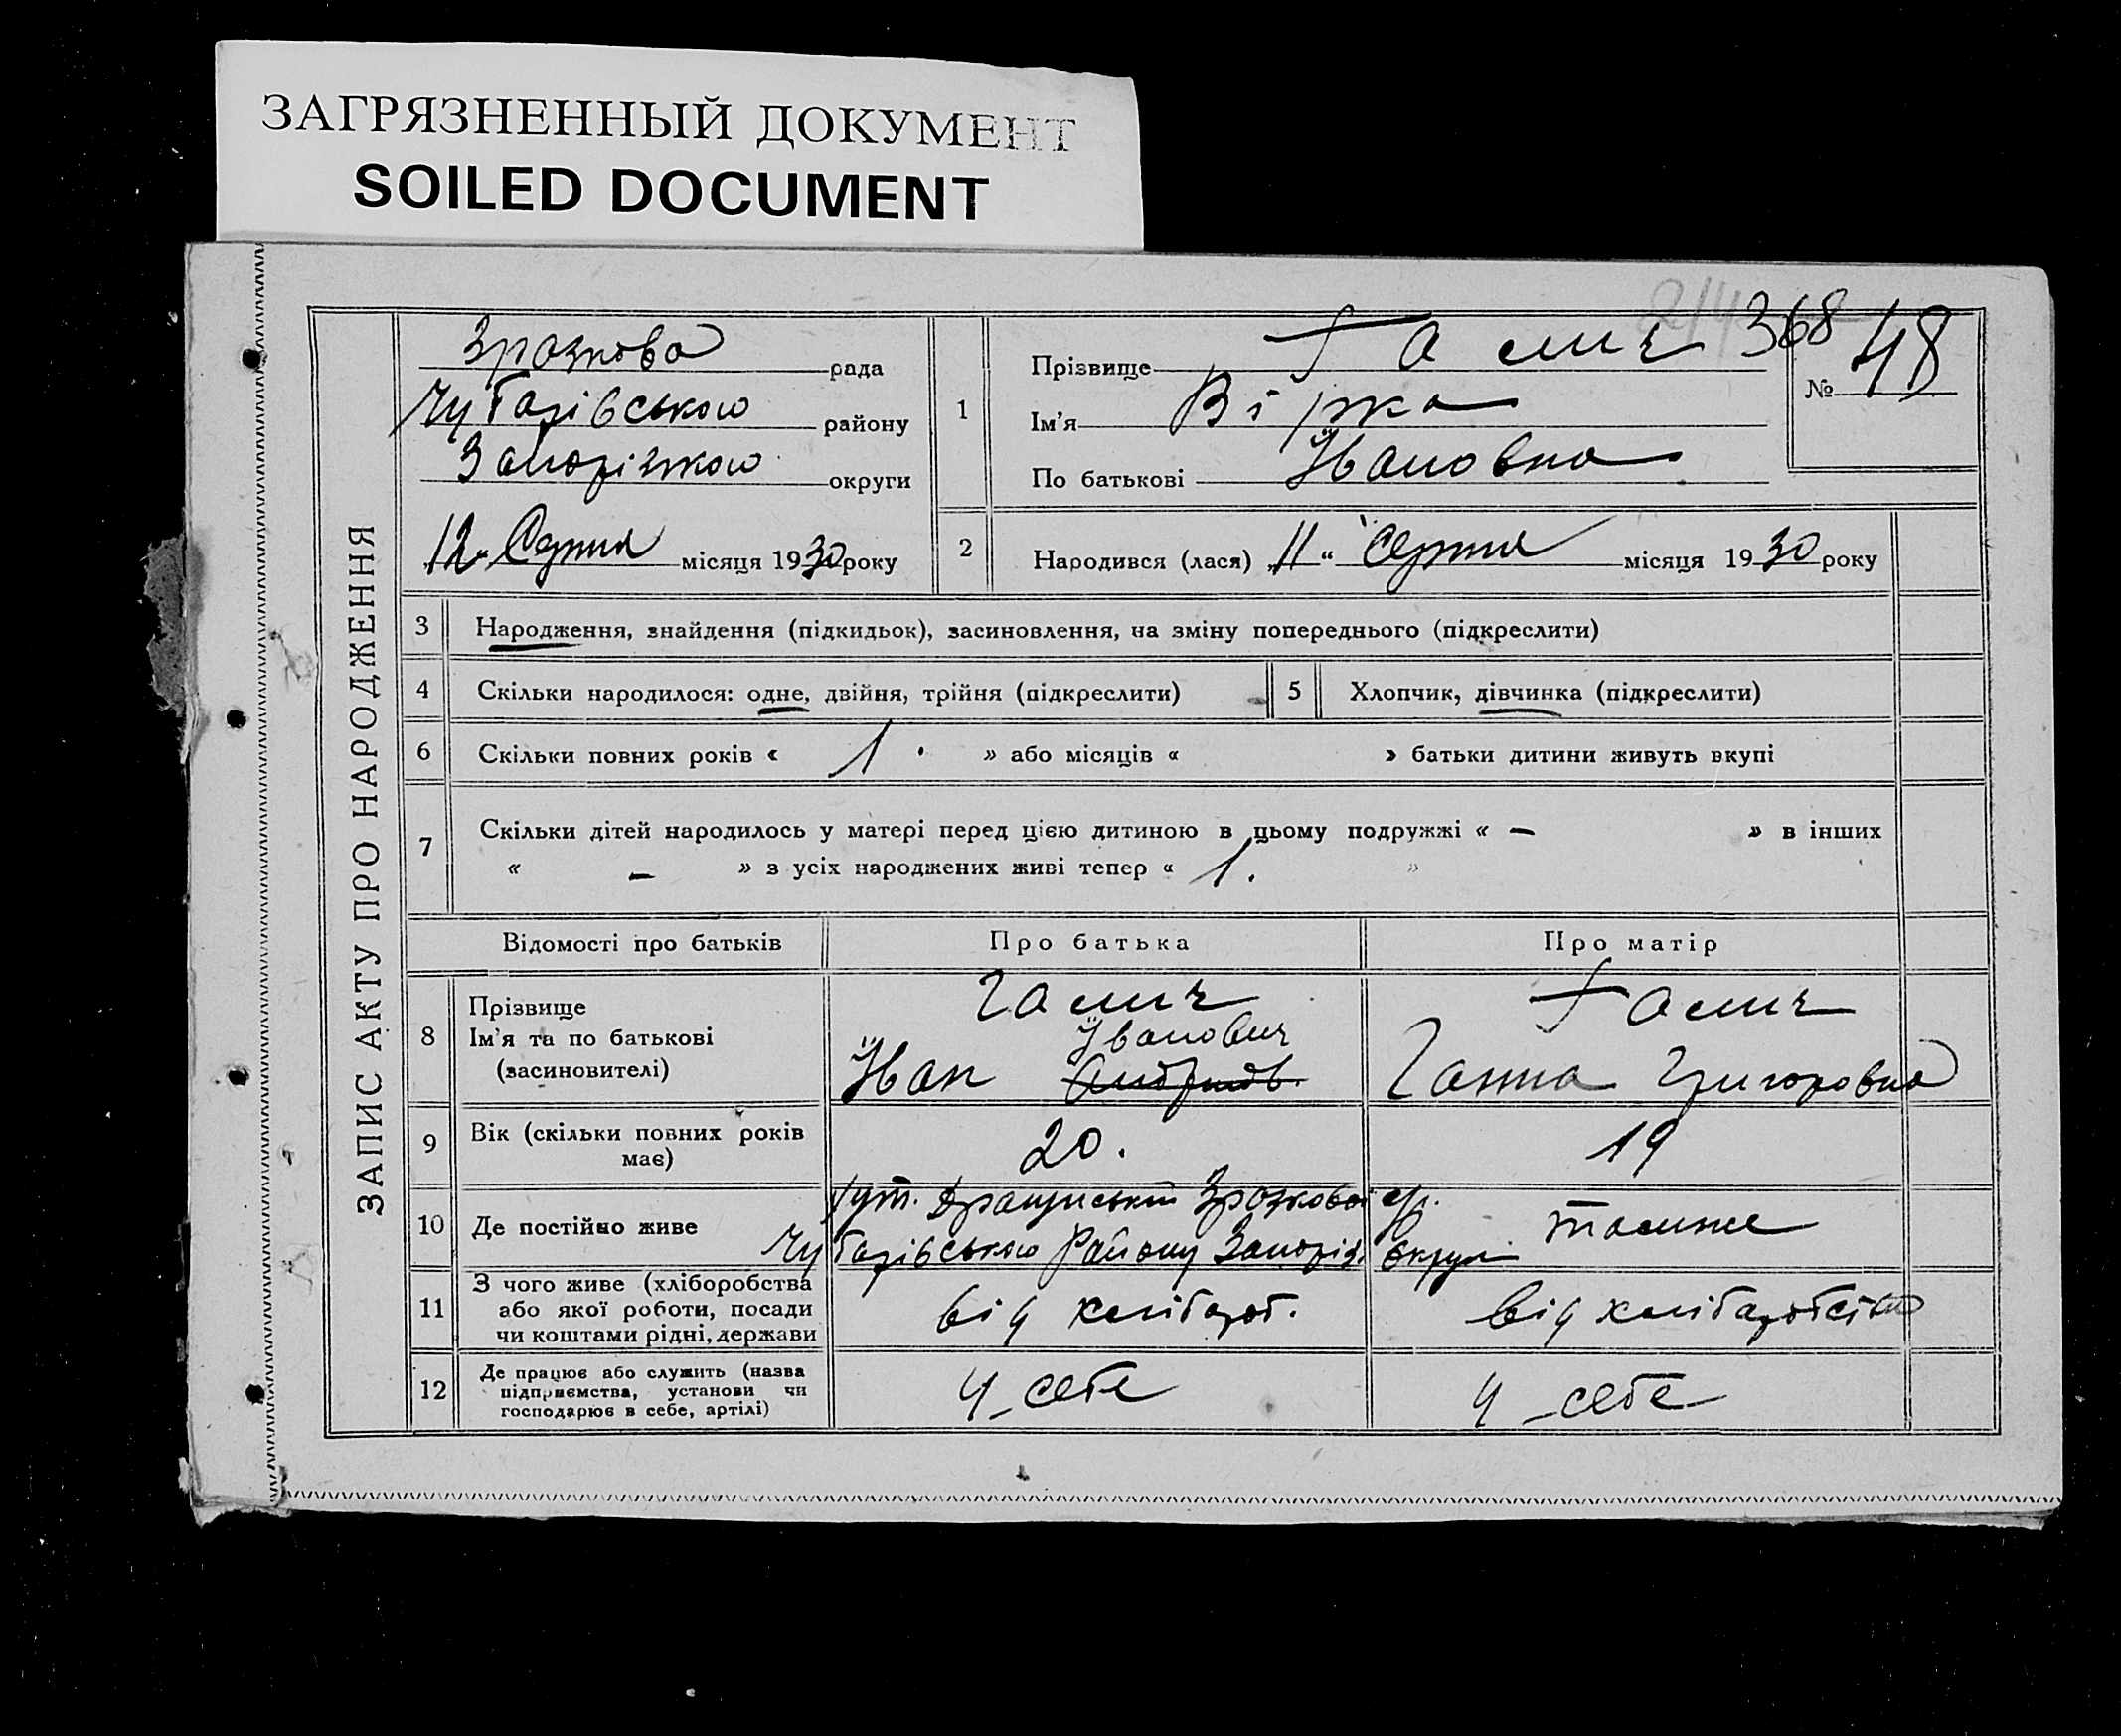 ЗАГРЯЗНЕННЫЙ ДОКУМЕНТ
SOILED DOCUMENT
ЗАПИС АКТУ ПРО НАРОДЖЕННЯ
Зразкова рада
Чубарівського району
Запоріжкою округи
12 Серпня місяця 1930 року
368
№ 48
1 Прізвище Галич
Ім'я Вірка
По батькові Івановна
2 Народився (лася) „11“ Серпня місяця 1930 року
3 Народження, знайдення (підкидьок), засиновлення, на зміну попереднього (підкреслити)
4 Скільки народилося: одне, двійня, трійня (підкреслити) 5 Хлопчик, дівчинка (підкреслити)
6 Скільки повних років « 1 » або місяців « » батьки дитини живуть вкупі
7 Скільки дітей народилось у матері перед цією дитиною в цьому подружжі « — » в інших
« — » з усіх народжених живі тепер « 1. »
Відомості про батьків Про батька Про матір
8 Прізвище
Ім'я та по батькові
(засиновителі)
Галич
Іванович
Іван
Галич
Ганна Григоровна
9 Вік (скільки повних років
має)
20. 19
10 Де постійно живе
хут. Зразкової с/р.
Чубарівського Району Запоріз. округи
також
11 З чого живе (хліборобства
або якої роботи, посади
чи коштами рідні, держави
від хлібороб. від хліборобства
12 Де працює або служить (назва
підприємства, установи чи
господарює в себе, артілі)
у себе у себе